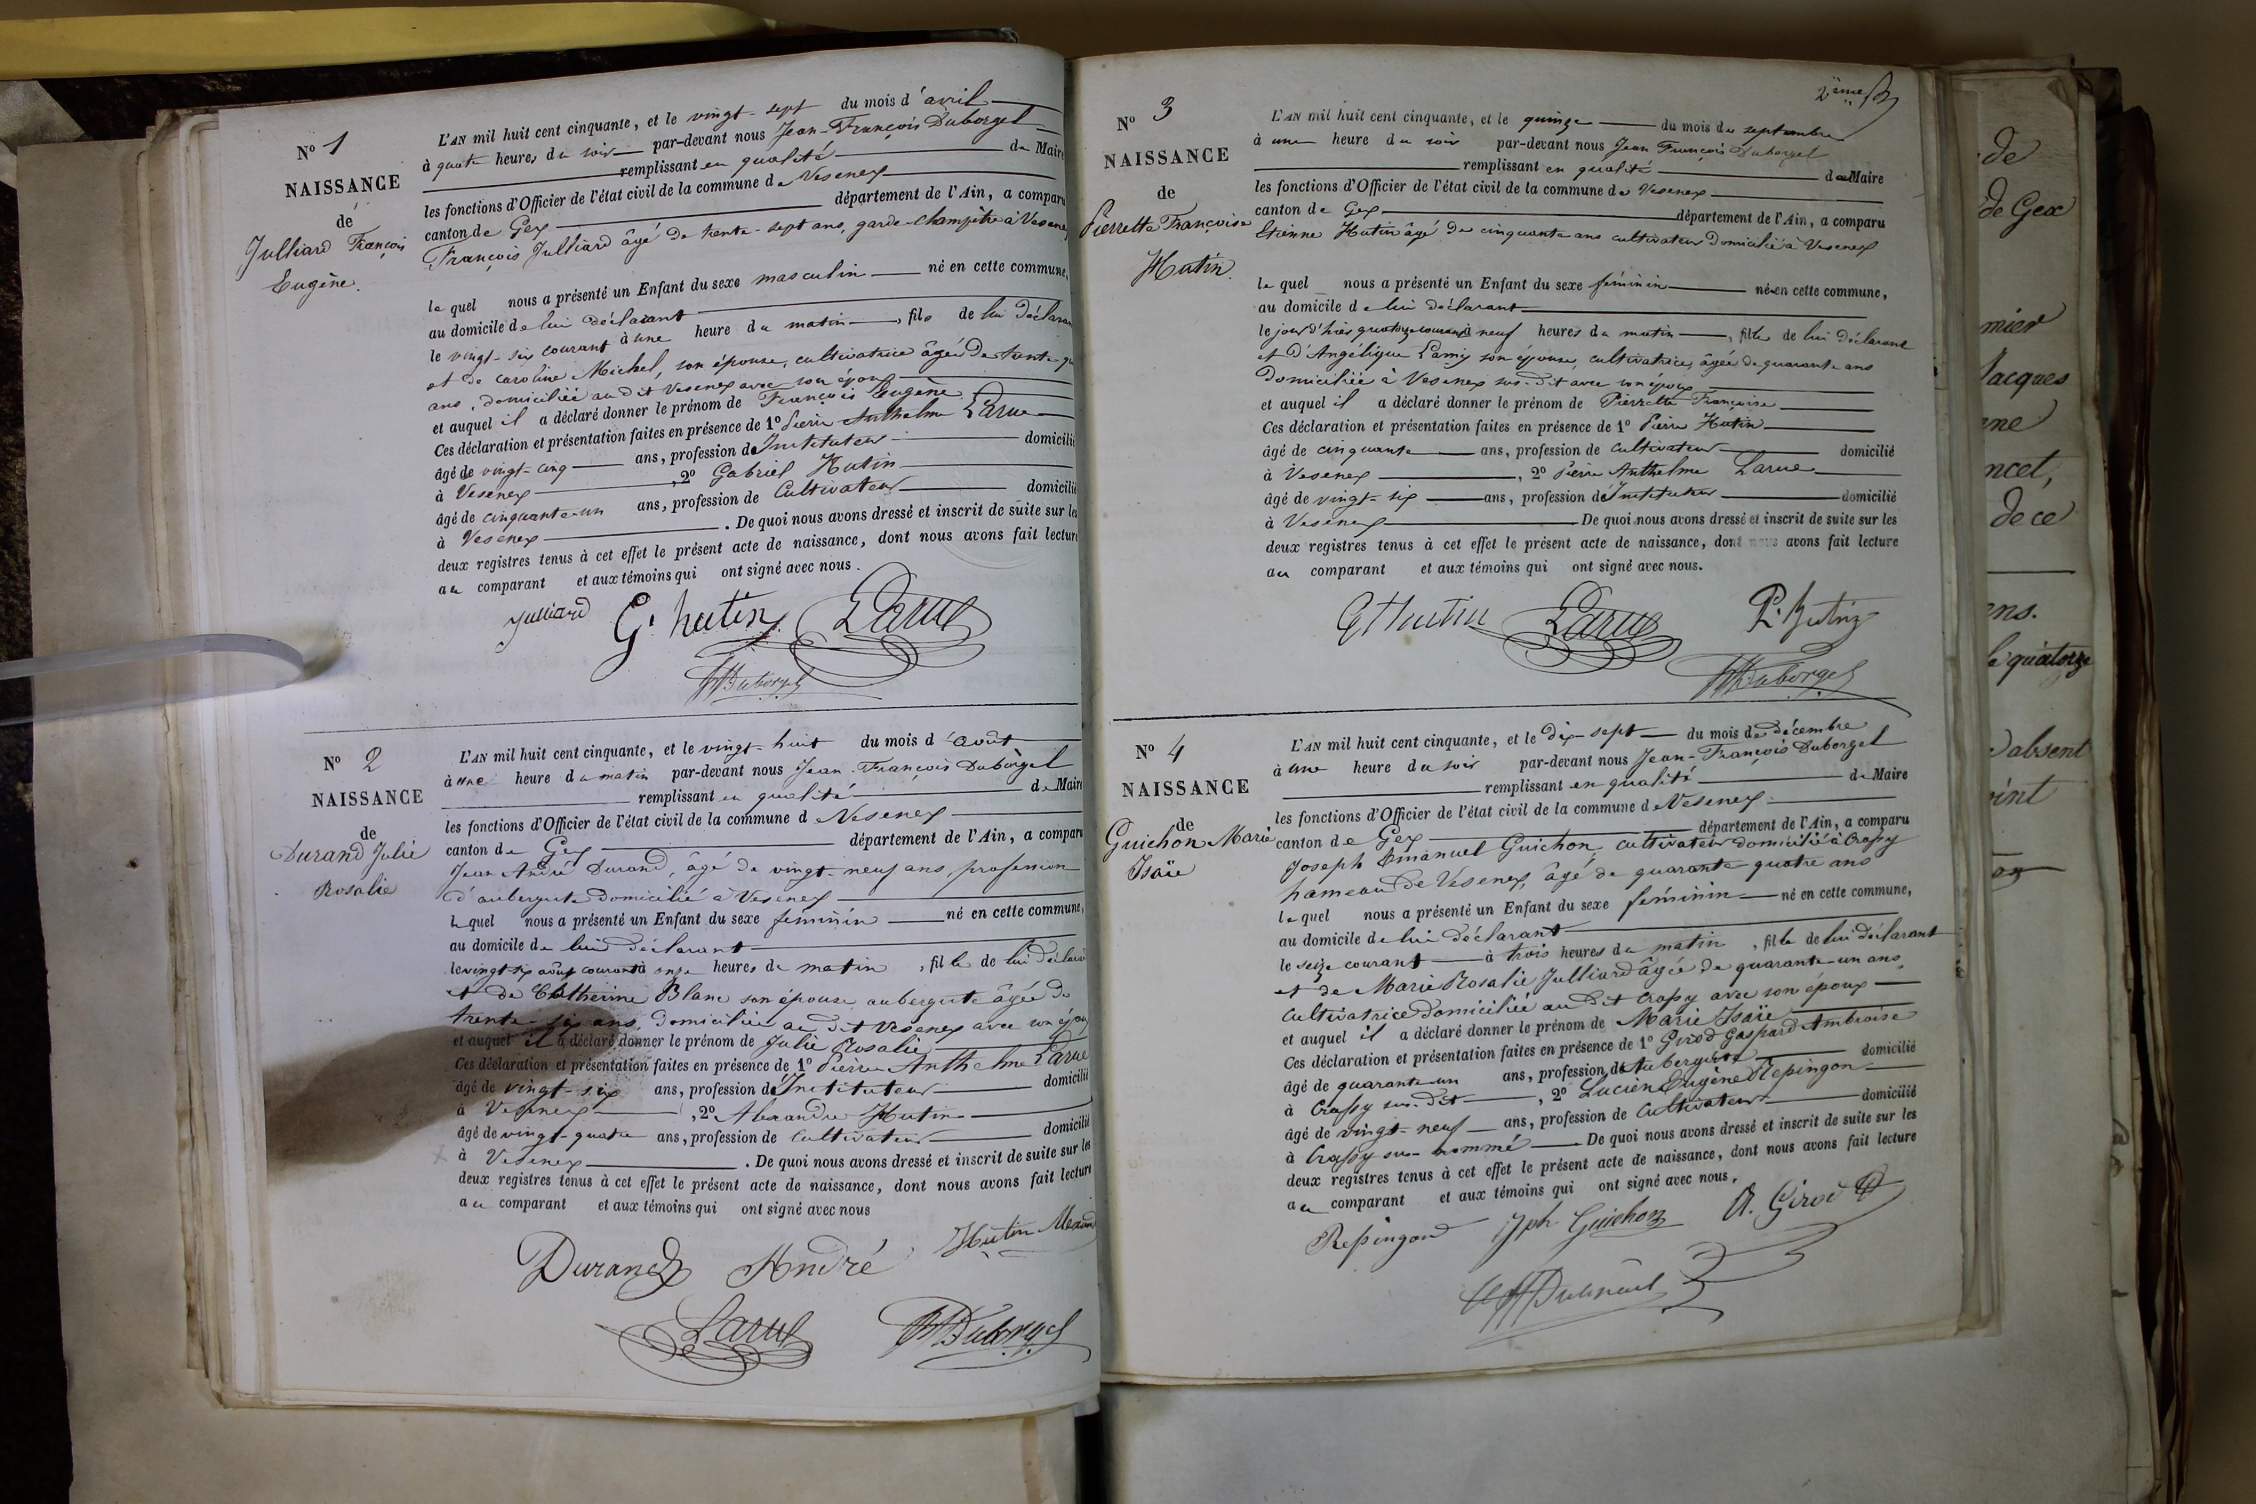 N° 1
NAISSANCE
de
Julliard François
Eugène.
L'AN mil huit cent cinquante, et le vingt-sept du mois d'avril
à quatre heures du soir par-devant nous Jean-François Duborgel
remplissant en qualité de Maire
les fonctions d'Officier de l'état civil de la commune de Vesenex
canton de Gex département de l'Ain, a comparu
François Julliard âgé de trente-sept ans, garde-champêtre à Vesenex
le quel nous a présenté un Enfant du sexe masculin né en cette commune,
au domicile de lui déclarant
le vingt-six courant à une heure du matin, fils de lui déclarant
et de Caroline Michel, son épouse, cultivatrice âgée de trente-
ans, domiciliée au dit Vesenex avec son époux
et auquel il a déclaré donner le prénom de François Eugène
Ces déclaration et présentation faites en présence de 1° Pierre Anthelme Larue
âgé de vingt-cinq ans, profession d'Instituteur domicilié
à Vesenex, 2° Gabriel Hutin
âgé de cinquante-un ans, profession de Cultivateur domicilié
à Vesenex. De quoi nous avons dressé et inscrit de suite sur les
deux registres tenus à cet effet le présent acte de naissance, dont nous avons fait lecture
au comparant et aux témoins qui ont signé avec nous.
Julliard G. hutin Larue
Duborgel
N° 2
NAISSANCE
de
Durand Julie
Rosalie
L'AN mil huit cent cinquante, et le vingt-huit du mois d'août
à une heure du matin par-devant nous Jean-François Duborgel
remplissant en qualité de Maire
les fonctions d'Officier de l'état civil de la commune d Vesenex
canton de Gex département de l'Ain, a comparu
Jean André Durand, âgé de vingt-neuf ans, profession
d'aubergiste domicilié à Vesenex
le quel nous a présenté un Enfant du sexe féminin né en cette commune,
au domicile de lui déclarant
le vingt-six août courant à onze heures du matin, fille de lui déclarant
et de Catherine Blanc son épouse aubergiste âgée de
trente-six ans, domiciliée au dit Vesenex avec son époux
et auquel il a déclaré donner le prénom de Julie Rosalie
Ces déclaration et présentation faites en présence de 1° Pierre Anthelme Larue
âgé de vingt-six ans, profession d'Instituteur domicilié
à Vesenex, 2° Alexandre Hutin
âgé de vingt-quatre ans, profession de cultivateur domicilié
à Vesenex. De quoi nous avons dressé et inscrit de suite sur les
deux registres tenus à cet effet le présent acte de naissance, dont nous avons fait lecture
au comparant et aux témoins qui ont signé avec nous
Durand André Hutin Alexand
Larue Duborgel
2ème
N° 3
NAISSANCE
de
Pierrette Françoise
Hutin.
L'AN mil huit cent cinquante, et le quinze du mois de septembre
à une heure du soir par-devant nous Jean François Duborgel
remplissant en qualité de Maire
les fonctions d'Officier de l'état civil de la commune de Vesenex
canton de Gex département de l'Ain, a comparu
Etienne Hutin âgé de cinquante ans cultivateur domicilié à Vesenex
le quel nous a présenté un Enfant du sexe féminin né en cette commune,
au domicile de lui déclarant
le jour d'hier quatorze courant à neuf heures du matin, fille de lui déclarant
et d'Angélique Lamy son épouse, cultivatrice, âgée de quarante ans
domiciliée à Vesenex sus-dit avec son époux
et auquel il a déclaré donner le prénom de Pierrette Françoise
Ces déclaration et présentation faites en présence de 1° Pierre Hutin
âgé de cinquante ans, profession de Cultivateur domicilié
à Vesenex, 2° Pierre Anthelme Larue
âgé de vingt-six ans, profession d'Instituteur domicilié
à Vesenex De quoi nous avons dressé et inscrit de suite sur les
deux registres tenus à cet effet le présent acte de naissance, dont nous avons fait lecture
au comparant et aux témoins qui ont signé avec nous.
Hutin Larue P. hutin
Duborgel
N° 4
NAISSANCE
de
Guichon Marie
Isaïe
L'AN mil huit cent cinquante, et le dix-sept du mois de décembre
à une heure du soir par-devant nous Jean-François Duborgel
remplissant en qualité de Maire
les fonctions d'Officier de l'état civil de la commune de Vesenex
canton de Gex département de l'Ain, a comparu
Joseph Emanuel Guichon cultivateur domicilié à Crassy
hameau de Vesenex, âgé de quarante quatre ans
le quel nous a présenté un Enfant du sexe féminin né en cette commune,
au domicile de lui déclarant
le seize courant à trois heures du matin, fille de lui déclarant
et de Marie Rosalie Julliard âgée de quarante-un ans,
cultivatrice domiciliée au dit Crassy avec son époux
et auquel il a déclaré donner le prénom de Marie Isaïe
Ces déclaration et présentation faites en présence de 1° Girod Gaspard Ambroise
âgé de quarante-un ans, profession d'Aubergiste domicilié
à Crassy sus-dit, 2° Lucien Eugène Repingon
âgé de vingt-neuf ans, profession de Cultivateur domicilié
à Crassy sus-nommé De quoi nous avons dressé et inscrit de suite sur les
deux registres tenus à cet effet le présent acte de naissance, dont nous avons fait lecture
au comparant et aux témoins qui ont signé avec nous.
Repingon Jph Guichon A. Girod
de
de Gex
mier
Jacques
ncet,
de ce
ens.
le quatorze
absent